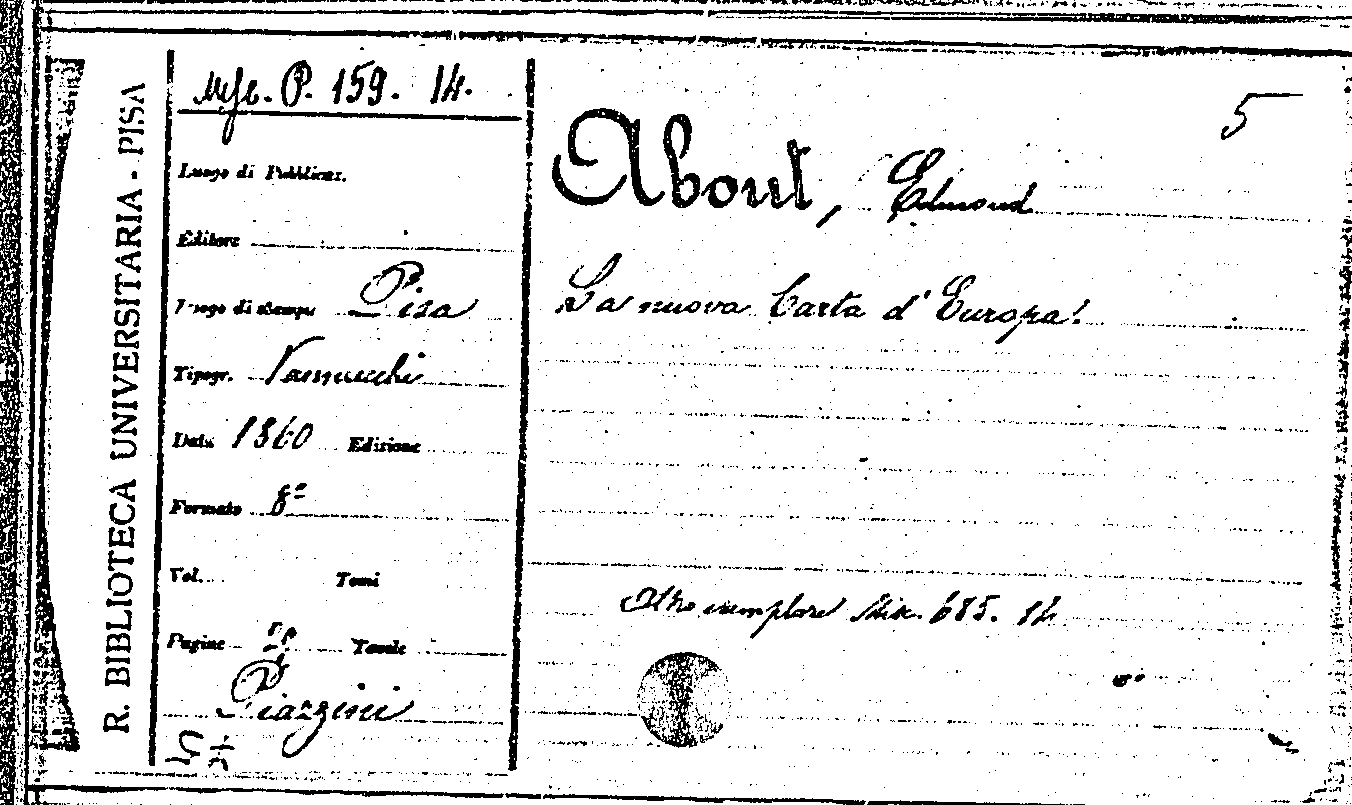 R. BIBLIOTECA UNIVERSITARIA - PISA
P. 159. 14.
Luogo di Pubblicaz.
Editore
Luogo di stampa Pisa
Tipogr. Vannucchi
Data 1860 Edizione
Formato 8º
Vol. Tomi
Pagine Tavole
Piazzini
5
About, Edmond
La nuova Carta d'Europa!
Altro esemplare Misc. 685. 14